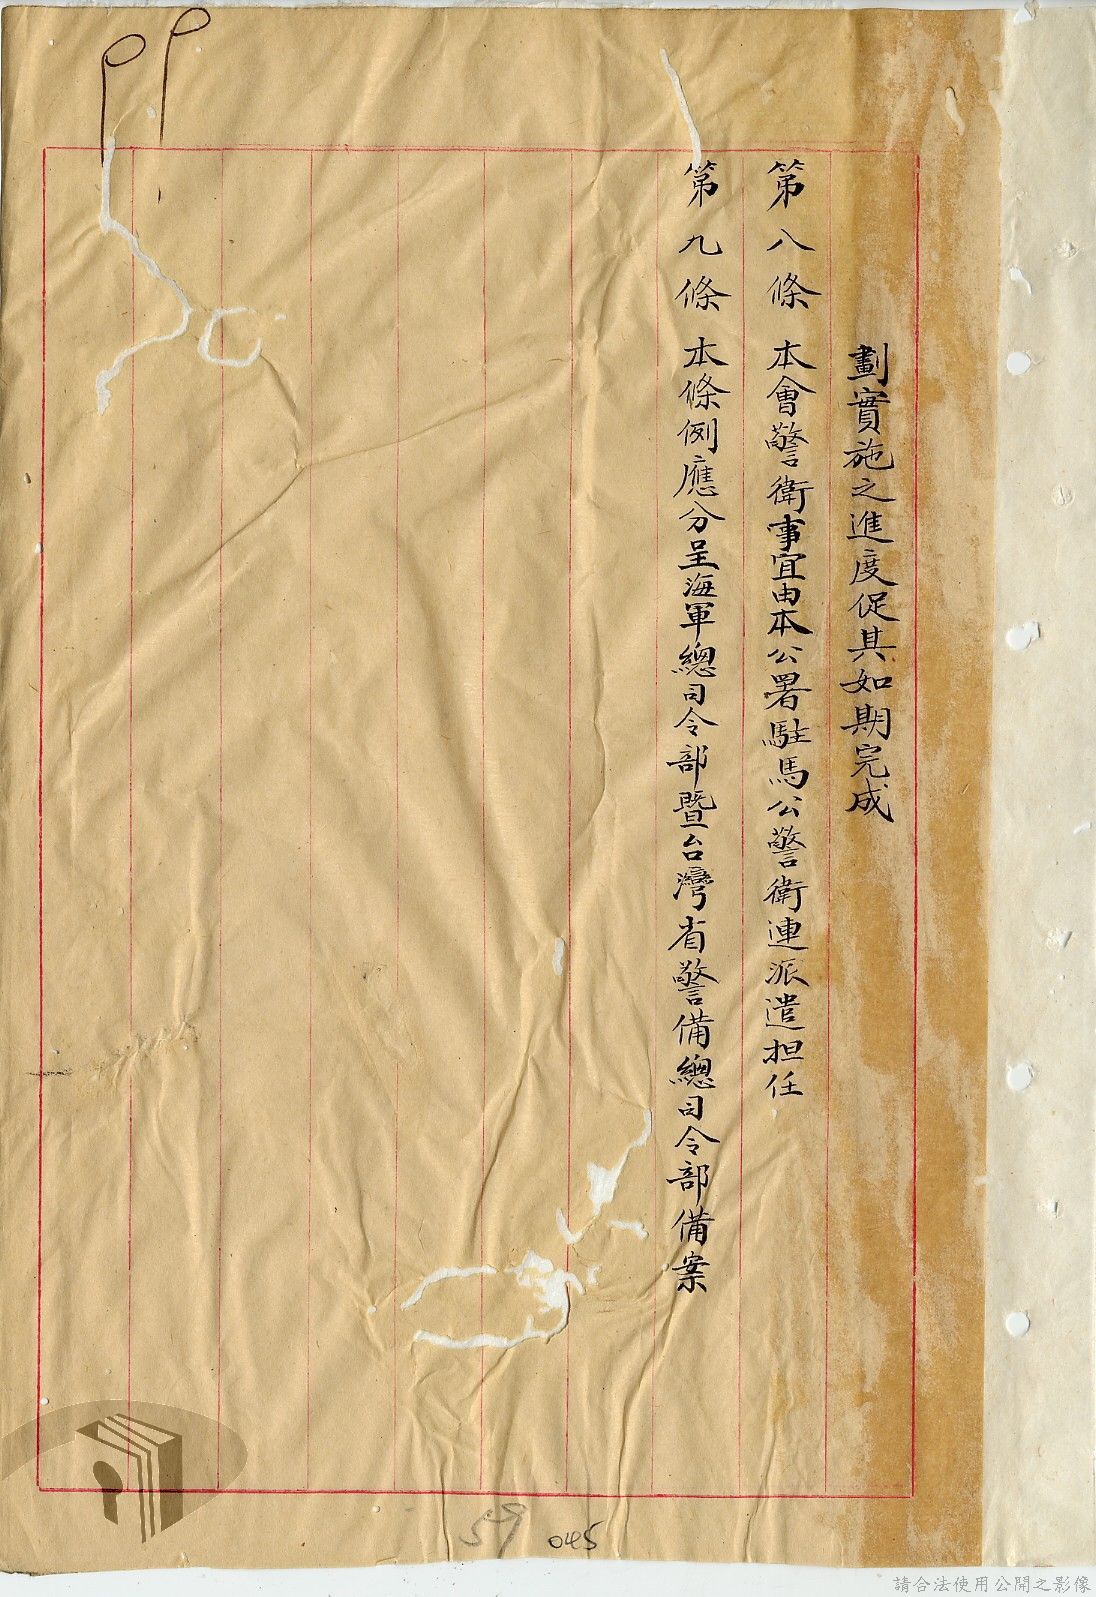 劃實施之進度促其如期完成
第八條 本會警衛事宜由本公署駐馬公警衛連派遣担任
第九條 本條例應分呈海軍總司令部暨台灣省警備總司令部備案
99
59
045
請合法使用公開之影像